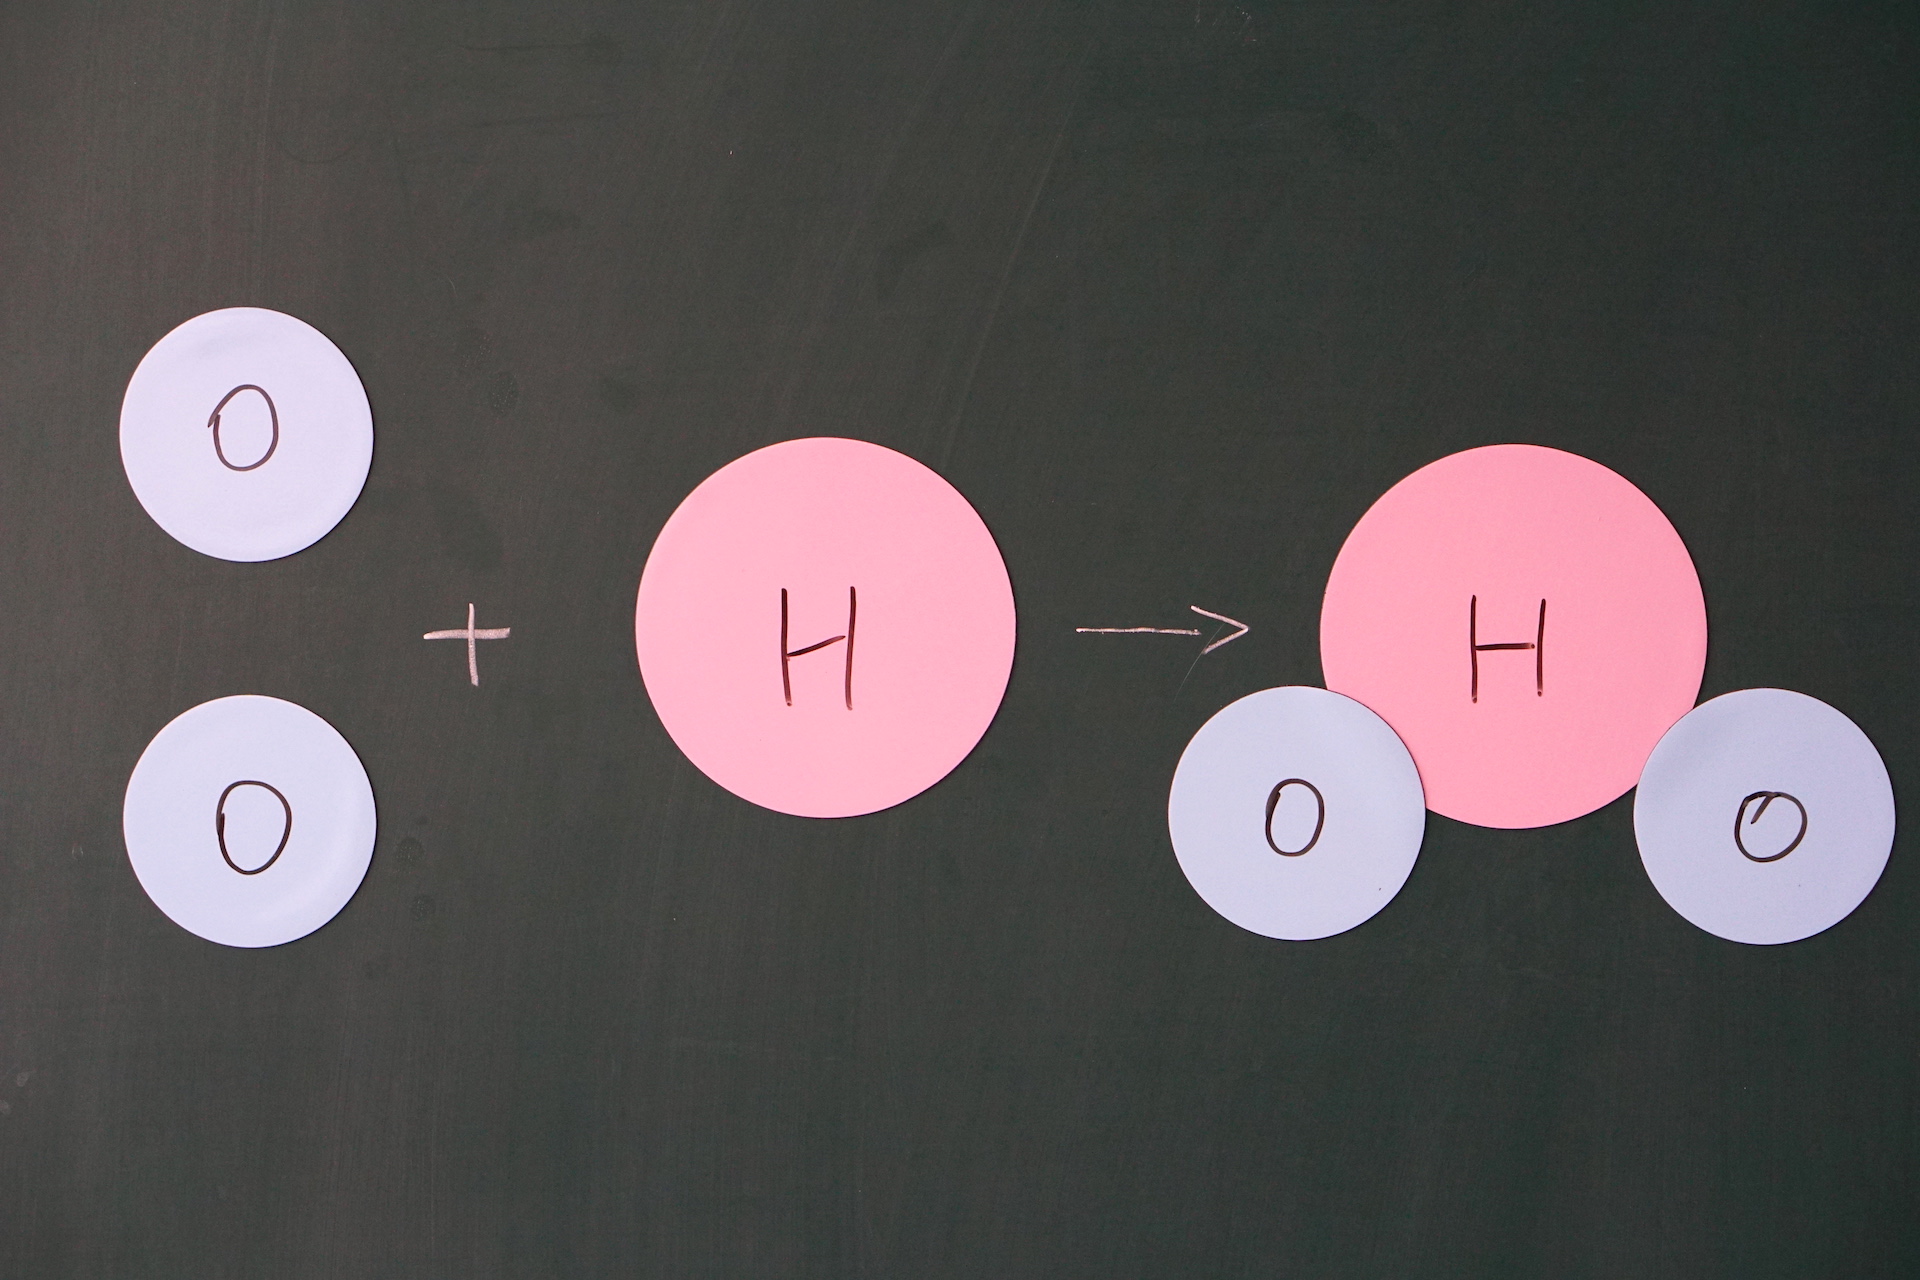 O
O + H → H
O O